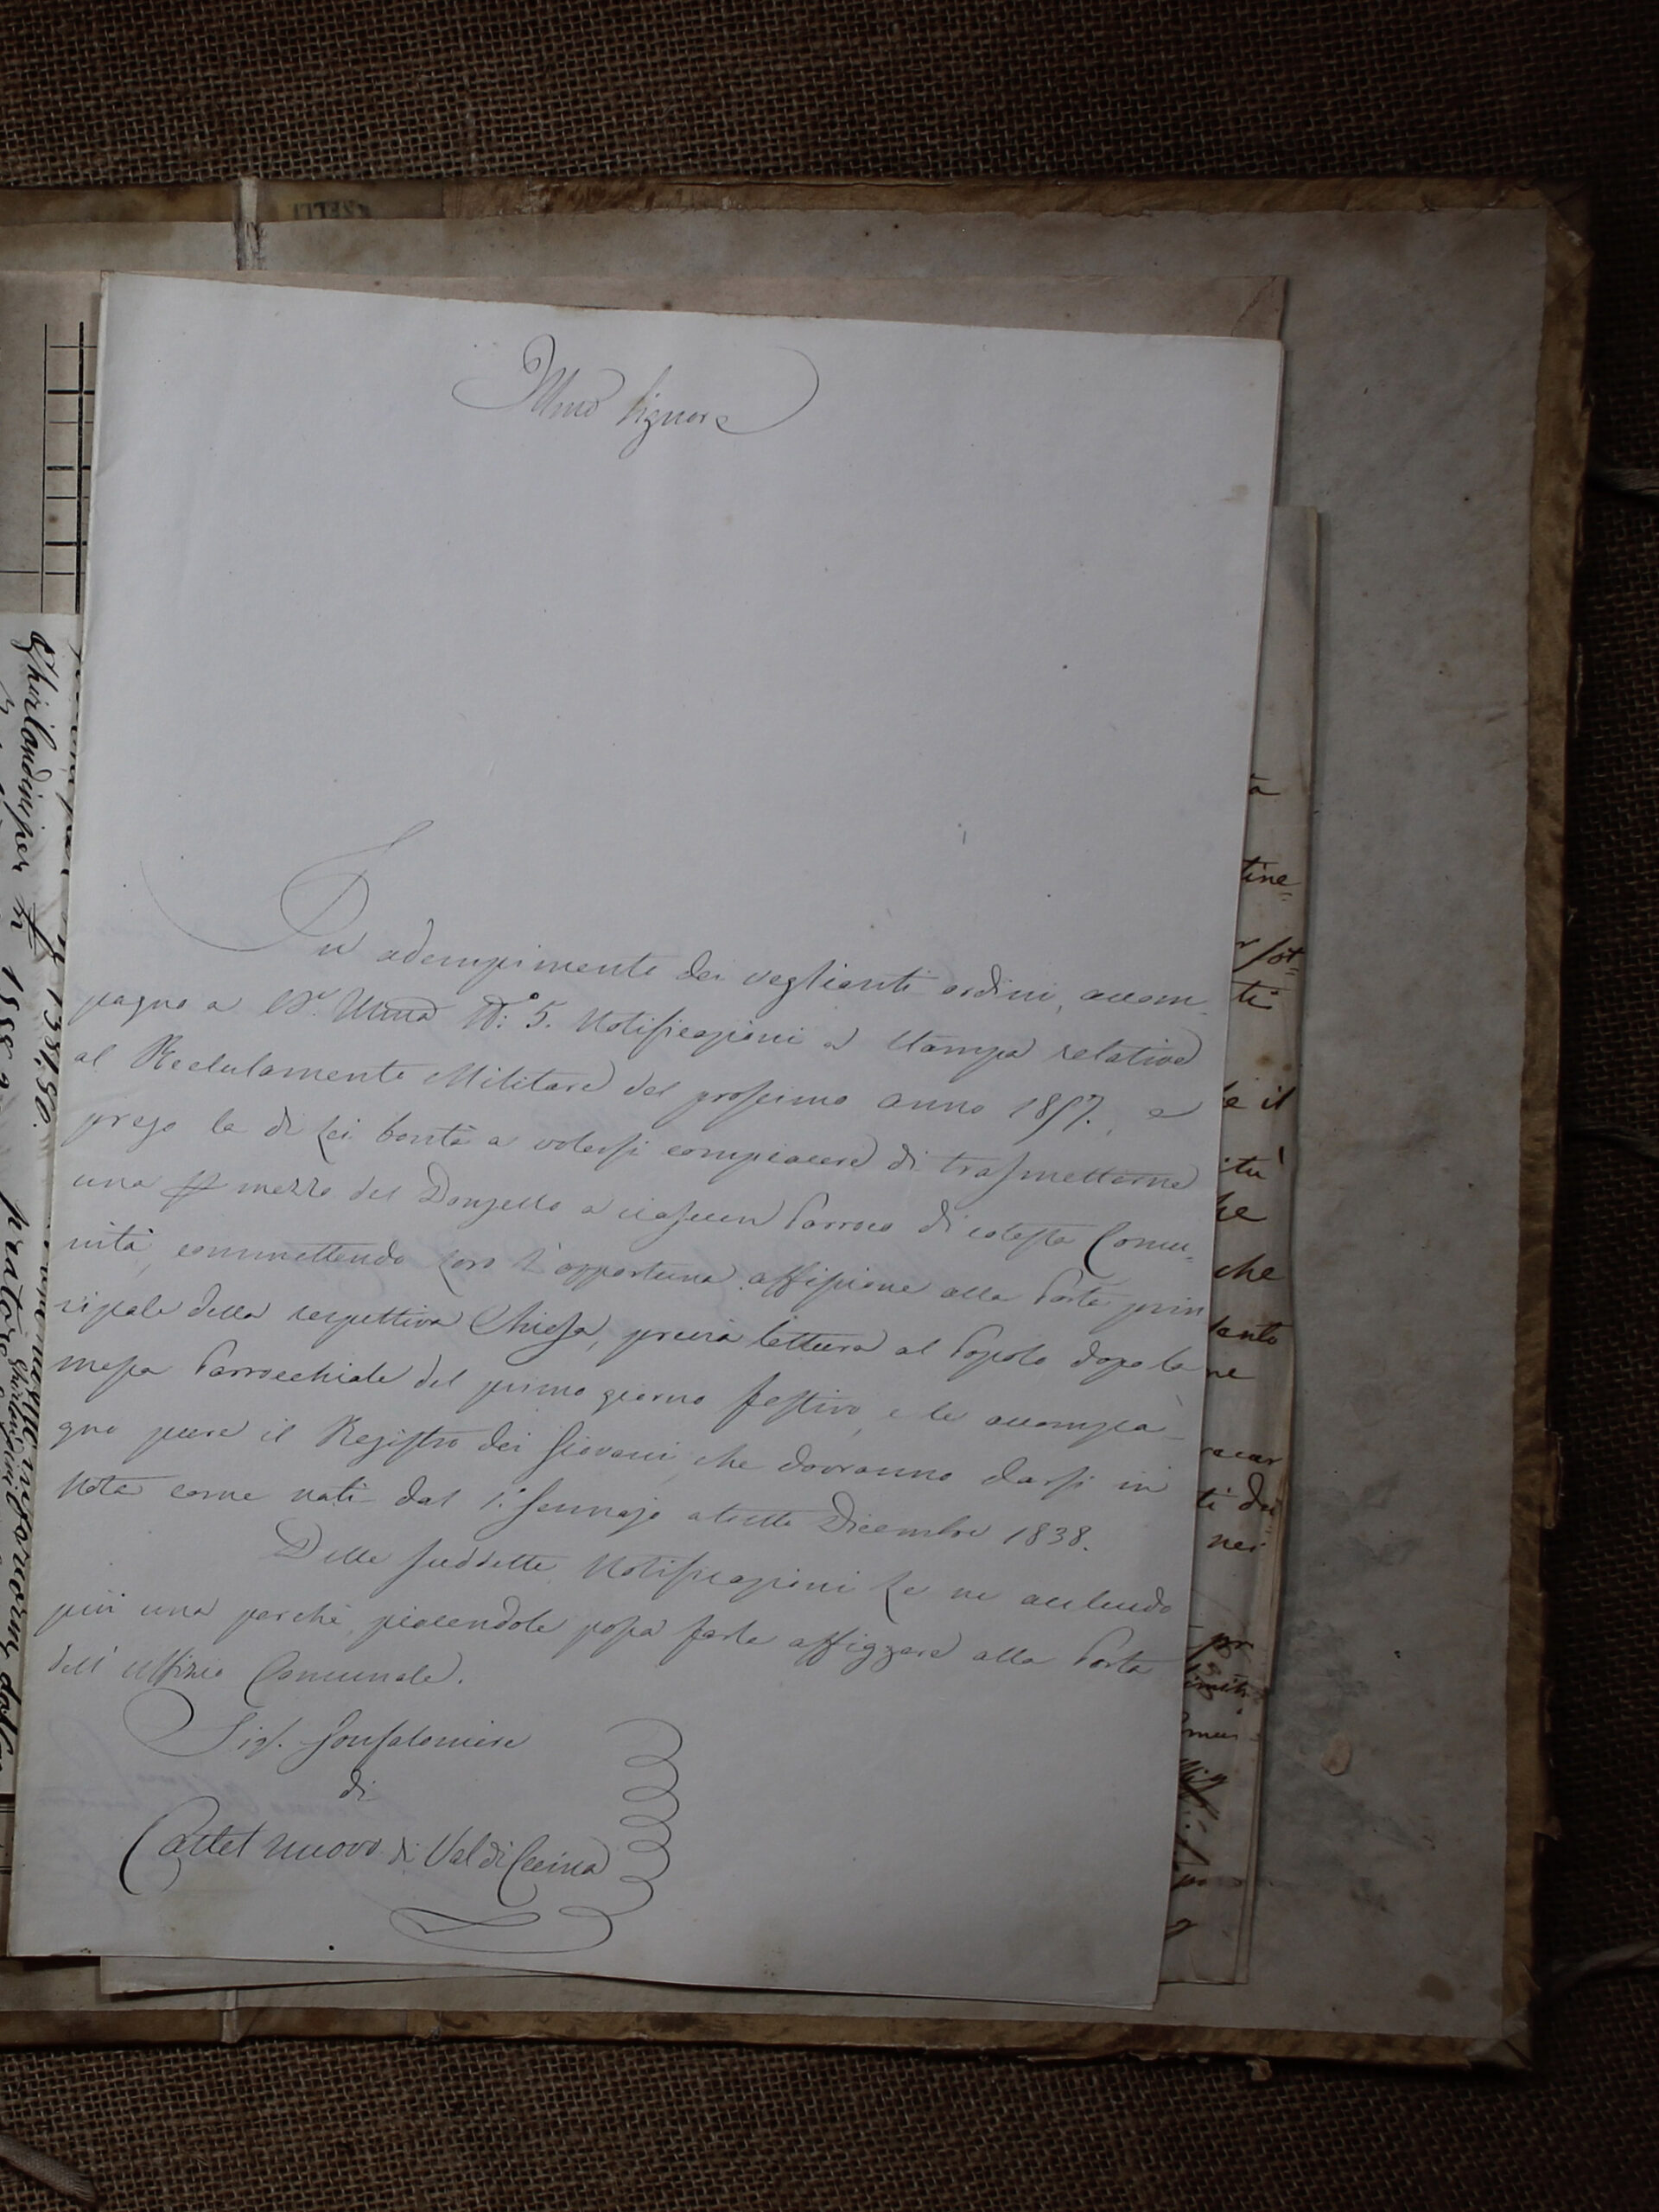 Illmo Signore
In adempimento dei veglianti ordini, accom-
pagno a V.S. Illma N.° 5. Notificazioni a Stampa relative
al Reclutamento Militare del prossimo anno 1857., e
prego la di Lei bontà a volersi compiacere di trasmetterne
una p mezzo del Donzello a ciascun Parroco di cotesta Comu-
nità, commettendo loro l'opportuna affissione alla Porta prin
cipale della respettiva Chiesa, previa lettura al Popolo dopo la
messa Parrocchiale del primo giorno festivo, e le accompa-
gno pure il Registro dei Giovani che dovranno darsi in
Nota come nati dal 1.° Gennajo a tutto Dicembre 1838.
Delle suddette Notificazioni Le ne accludo
più una perchè, piacendole possa farla affiggere alla Porta
dell'Uffizio Comunale.
Sig. Gonfaloniere
di
Castel nuovo di Val di Cecina